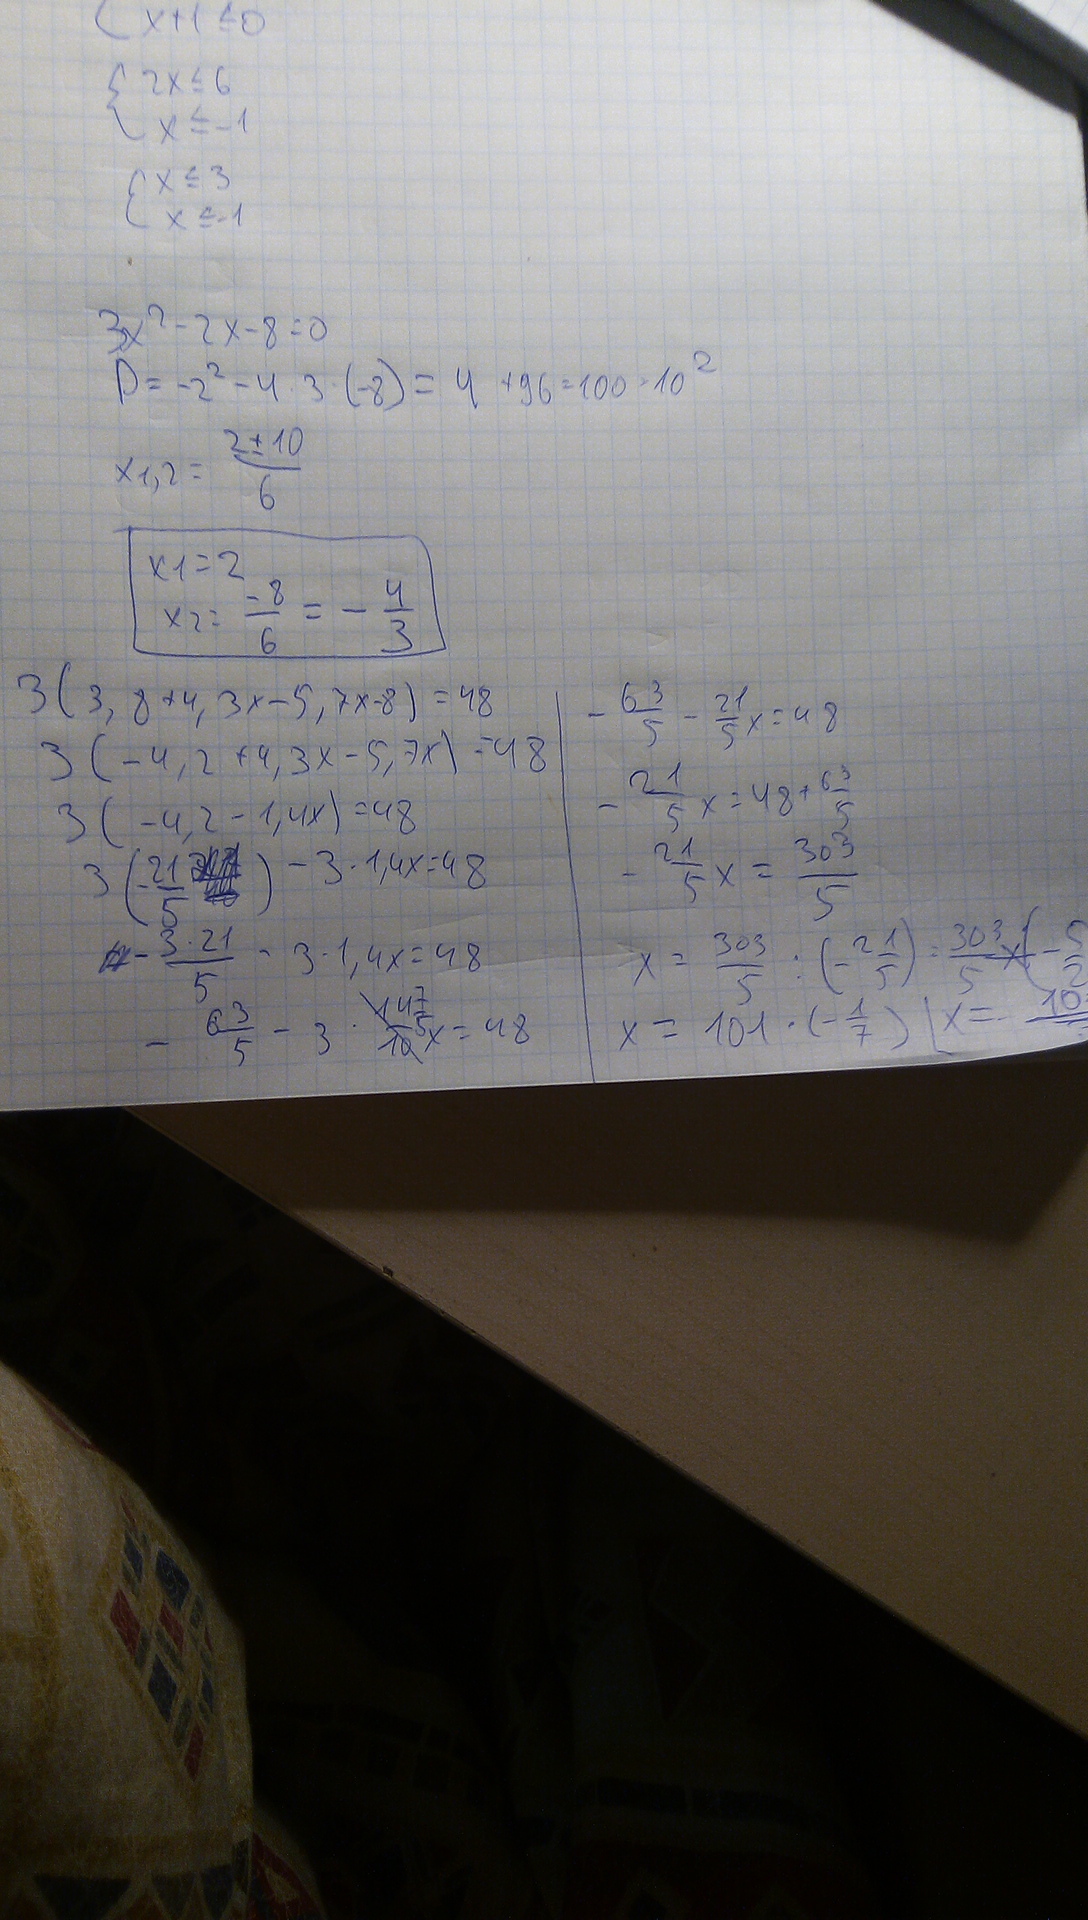 { x+1 ≤ 0
{ 2x ≤ 6
x ≤ -1
{ x ≤ 3
x ≤ -1
3x² - 2x - 8 = 0
D = -2² - 4 · 3 · (-8) = 4 + 96 = 100 = 10²
x1,2 = (2 ± 10)/6
x1 = 2
x2 = -8/6 = - 4/3
3(3,8+4,3x-5,7x-8) = 48
3(-4,2+4,3x-5,7x) = 48
3(-4,2-1,4x) = 48
3(-21/5) - 3·1,4x = 48
- 3·21/5 - 3·1,4x = 48
- 63/5 - 3 · 14 7/10 5 x = 48
- 63/5 - 21/5 x = 48
- 21/5 x = 48 + 63/5
- 21/5 x = 303/5
x = 303/5 : (-21/5) = 303/5 × (- 5/2
x = 101 · (-1/7) | x = - 10